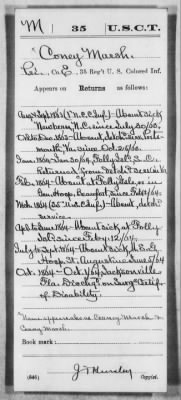 M 35 U.S.C.T.
Coney Marsh
Co. E, 35 Reg't U. S. Colored Inf.
Appears on
Returns as follows:
Aug & Sept 1863 (1" N.C.C. Inf.) Absent sick
Newbern N.C. since July 30/63.
Oct to Dec. 1863 Absent sick in Ports-
mouth Va. since Oct 26/63.
Jan. 1864 Jan 30/64, Folly Isl'd S.C.
Returned from
Feb. 1864 Absent at Folly Isl'd, or in
Gen. Hosp. Beaufort since Feb 14/64.
Mch. 1864 (35" U.S.C. Inf.) Absent, detch'd
service
Apr. to June 1864 Absent sick at Folly
Isl'd since Feby. 12/64.
July to Sept. 1864 Absent sick U.S.G.
Hosp. St. Augustine June 5/64
Oct. 1864 Oct. 1/64 Jacksonville
Fla. Discltd on Surgs. Certif.
of Disability.
Name appears also as Coney Marsh &
Caney Marsh.
Book mark:
J T Hursley
(546) Copyist.